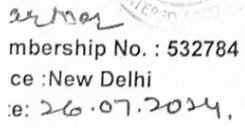 mbership No. : 532784
ce :New Delhi
:e: 26.07.2024.